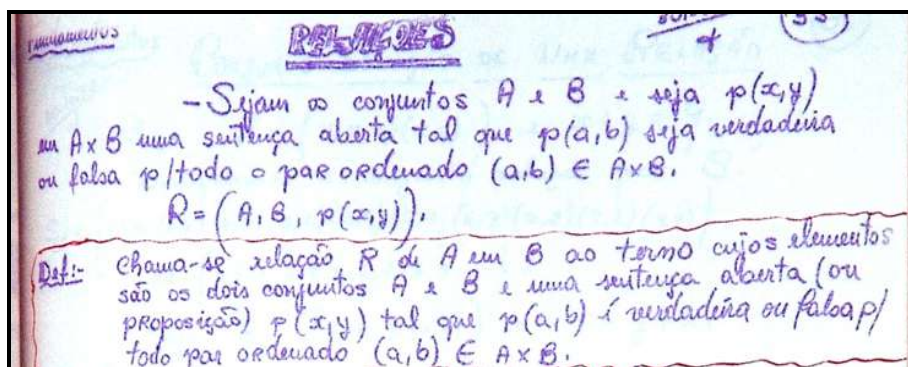 Fundamentos
RELAÇÕES
55
- Sejam os conjuntos A e B e seja p(x,y)
em A x B uma sentença aberta tal que p(a,b) seja verdadeira
ou falsa p/todo o par ordenado (a,b) ∈ A x B.
R = (A, B, p(x,y)).
Def:- Chama-se relação R de A em B ao terno cujos elementos
são os dois conjuntos A e B e uma sentença aberta (ou
proposição) p(x,y) tal que p(a,b) é verdadeira ou falsa p/
todo par ordenado (a,b) ∈ A x B.